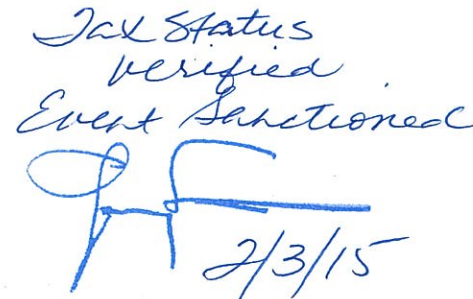 Tax Status
verified
Event Sanctioned
2/3/15